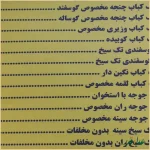 کباب چنجه مخصوص گوسفند
کباب چنجه مخصوص گوساله
کباب وزیری مخصوص
کباب کوبیده
گوسفندی تک سیخ
گوسفندی تک سیخ
کباب نگین دار
کباب لقمه مخصوص
جوجه با استخوان
جوجه ران مخصوص
جوجه سینه مخصوص
سیخ سینه بدون مخلفات
سیخ ران بدون مخلفات